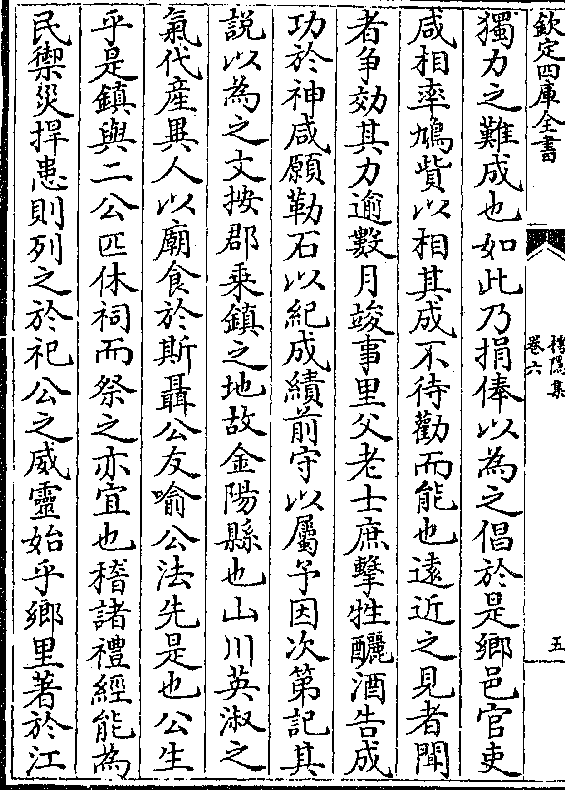 欽定四庫全書
樗隱集
卷六
五
獨力之難成也如此乃捐俸以為之倡於是鄉邑官吏
咸相率鳩貲以相其成不待勸而能也遠近之見者聞
者争効其力逾數月竣事里父老士庶擊牲釃酒告成
功於神咸願勒石以紀成績前守以屬予因次第記其
說以為之文按郡乘鎮之地故金陽縣也山川英淑之
氣代産異人以廟食於斯聶公友喻公法先是也公生
乎是鎮與二公匹休祠而祭之亦宜也稽諸禮經能為
民禦災捍患則列之於祀公之威靈始乎鄉里著於江